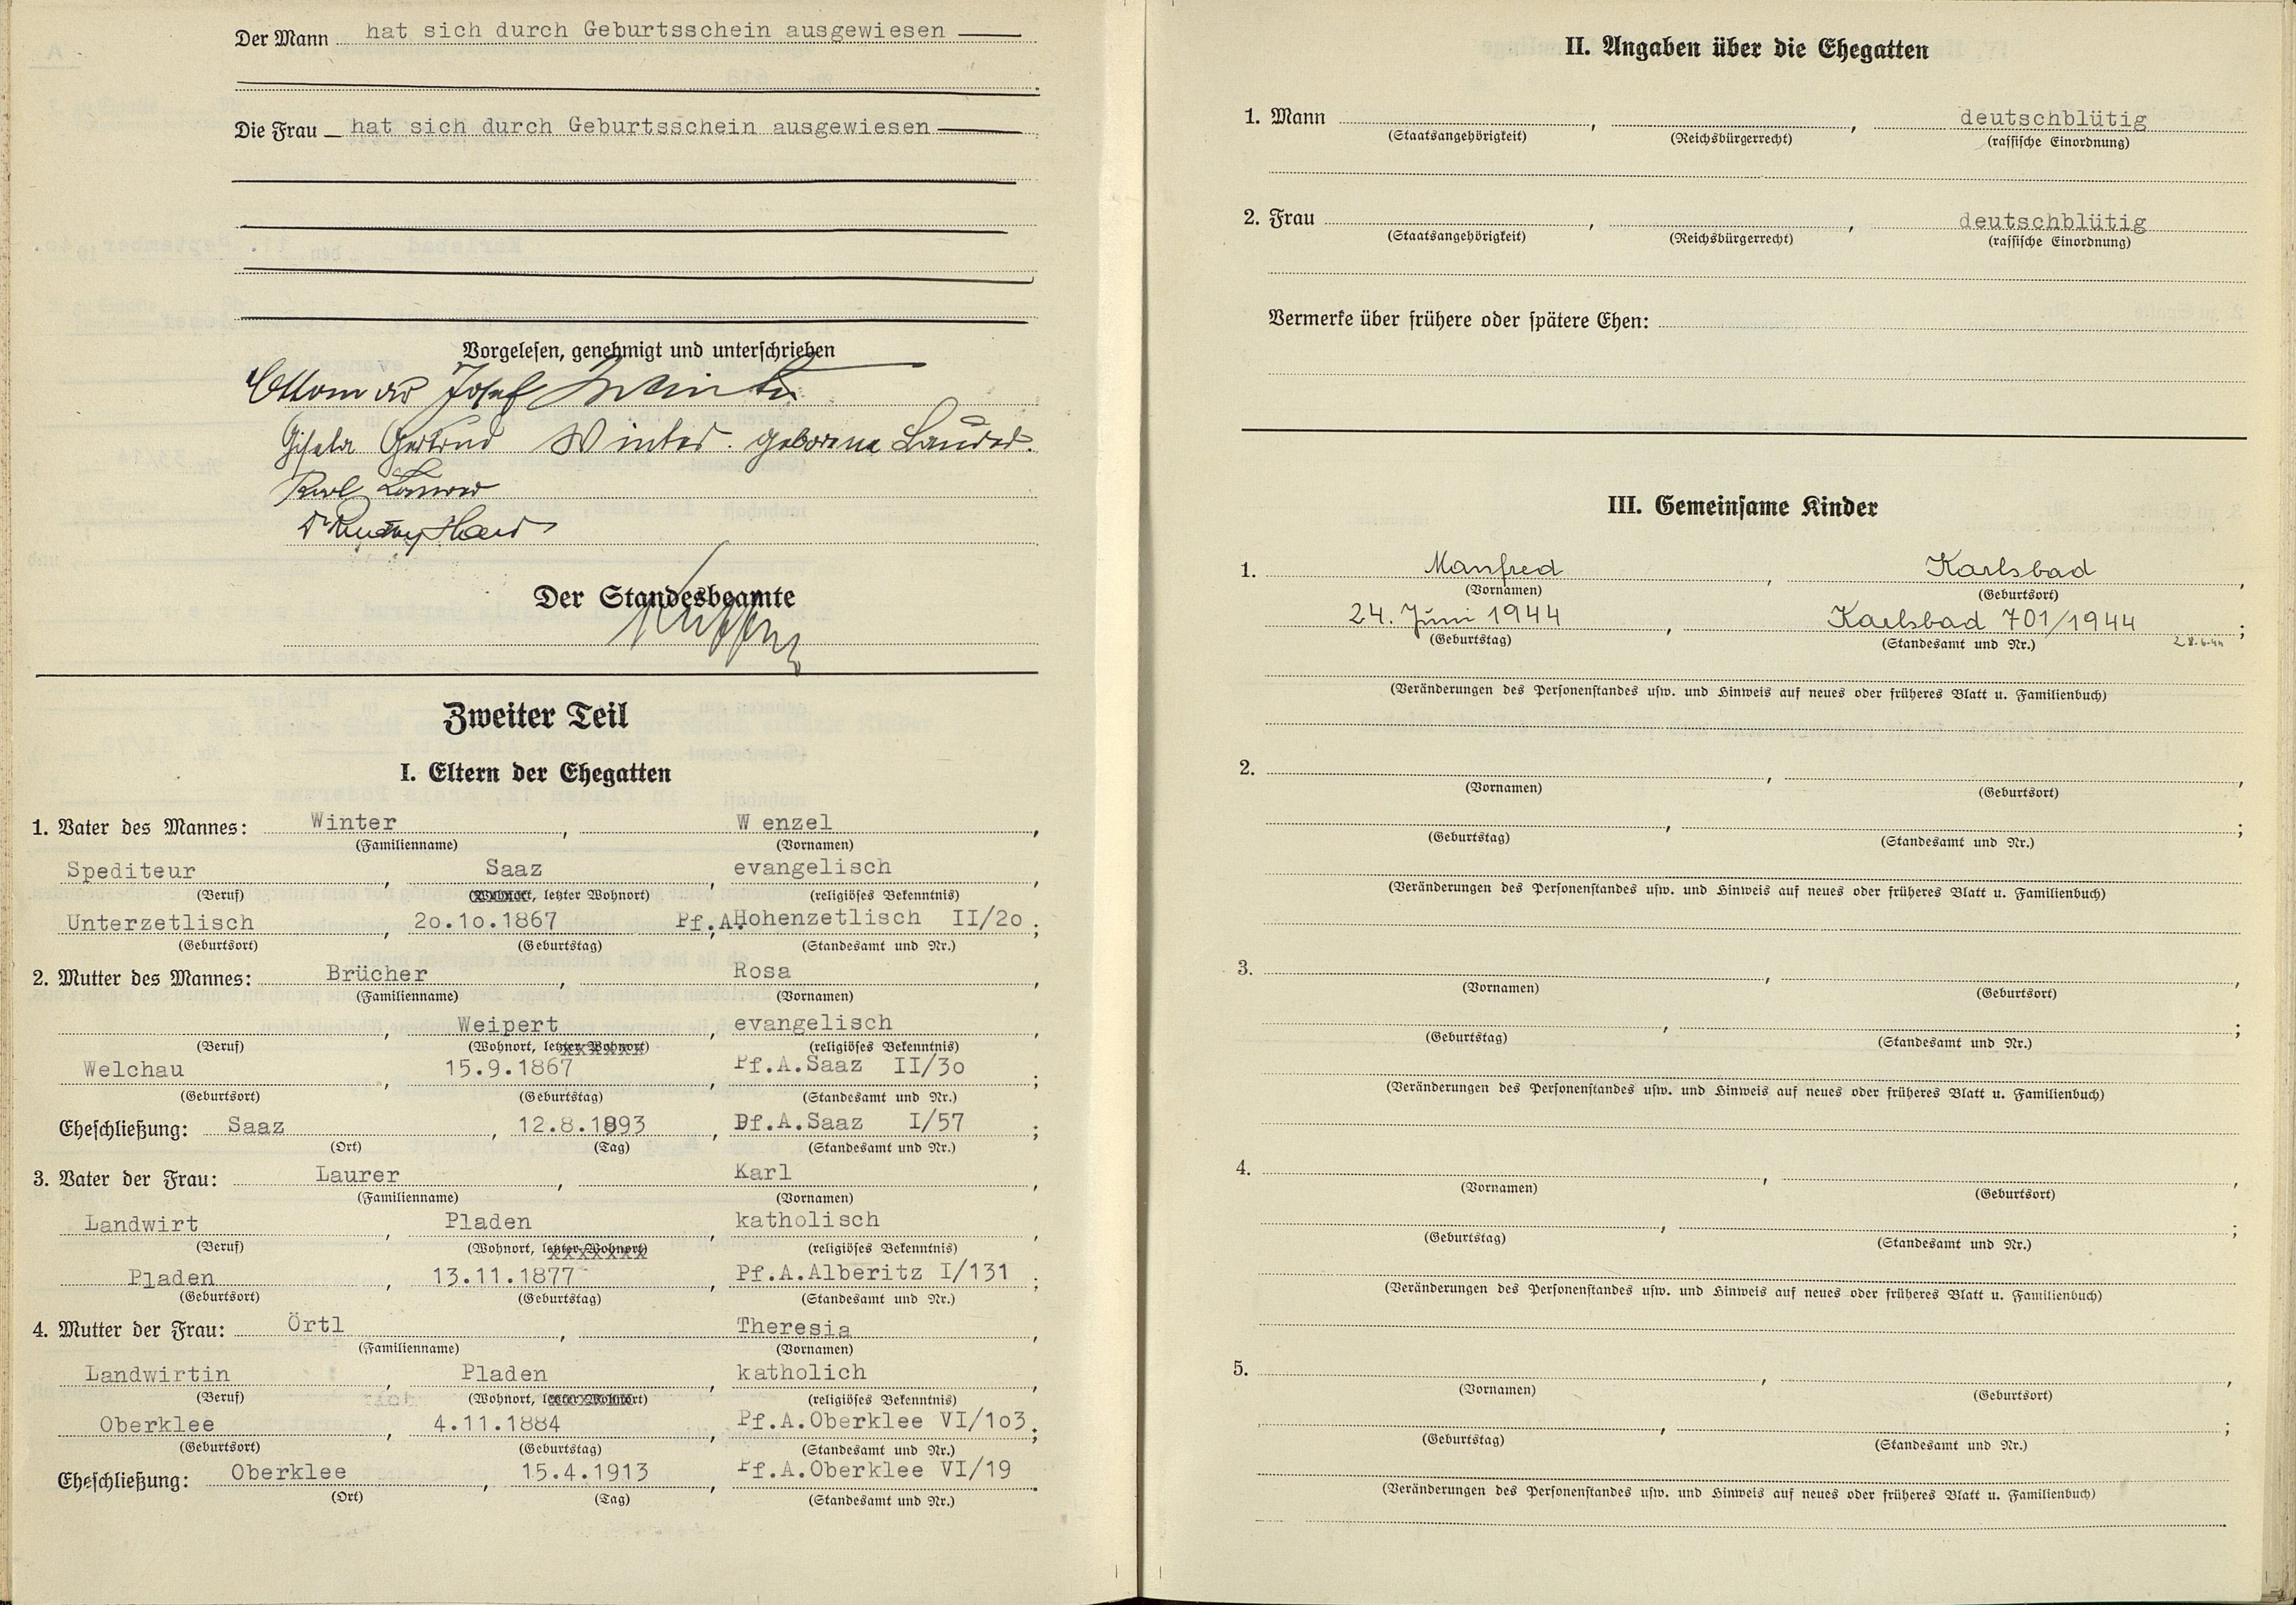 Der Mann hat sich durch Geburtsschein ausgewiesen
Die Frau hat sich durch Geburtsschein ausgewiesen
Vorgelesen, genehmigt und unterschrieben
Ottomar Josef Winter
Gisela Gertrud Winter geborene Laurer.
Karl Laurer
Der Standesbeamte
Zweiter Teil
I. Eltern der Ehegatten
1. Vater des Mannes: Winter, W enzel,
(Familienname) (Vornamen)
Spediteur, Saaz, evangelisch,
(Beruf) (Wohnort, letzter Wohnort) (religiöses Bekenntnis)
Unterzetlisch, 2o.1o.1867, Pf.A.Hohenzetlisch II/2o;
(Geburtsort) (Geburtstag) (Standesamt und Nr.)
2. Mutter des Mannes: Brücher, Rosa,
(Familienname) (Vornamen)
, Weipert, evangelisch,
(Beruf) (Wohnort, letzter Wohnort) (religiöses Bekenntnis)
Welchau, 15.9.1867, Pf.A.Saaz II/3o;
(Geburtsort) (Geburtstag) (Standesamt und Nr.)
Eheschließung: Saaz, 12.8.1893, Pf.A.Saaz I/57;
(Ort) (Tag) (Standesamt und Nr.)
3. Vater der Frau: Laurer, Karl,
(Familienname) (Vornamen)
Landwirt, Pladen, katholisch,
(Beruf) (Wohnort, letzter Wohnort) (religiöses Bekenntnis)
Pladen, 13.11.1877, Pf.A.Alberitz I/131;
(Geburtsort) (Geburtstag) (Standesamt und Nr.)
4. Mutter der Frau: Örtl, Theresia,
(Familienname) (Vornamen)
Landwirtin, Pladen, katholich,
(Beruf) (Wohnort, letzter Wohnort) (religiöses Bekenntnis)
Oberklee, 4.11.1884, Pf.A.Oberklee VI/1o3;
(Geburtsort) (Geburtstag) (Standesamt und Nr.)
Eheschließung: Oberklee, 15.4.1913, Pf.A.Oberklee VI/19.
(Ort) (Tag) (Standesamt und Nr.)
II. Angaben über die Ehegatten
1. Mann , , deutschblütig
(Staatsangehörigkeit) (Reichsbürgerrecht) (rassische Einordnung)
2. Frau , , deutschblütig
(Staatsangehörigkeit) (Reichsbürgerrecht) (rassische Einordnung)
Vermerke über frühere oder spätere Ehen:
III. Gemeinsame Kinder
1. Manfred, Karlsbad,
(Vornamen) (Geburtsort)
24. Juni 1944, Karlsbad 701/1944;
(Geburtstag) (Standesamt und Nr.) 28.6.44
(Veränderungen des Personenstandes usw. und Hinweis auf neues oder früheres Blatt u. Familienbuch)
2. , ,
(Vornamen) (Geburtsort)
, ;
(Geburtstag) (Standesamt und Nr.)
(Veränderungen des Personenstandes usw. und Hinweis auf neues oder früheres Blatt u. Familienbuch)
3. , ,
(Vornamen) (Geburtsort)
, ;
(Geburtstag) (Standesamt und Nr.)
(Veränderungen des Personenstandes usw. und Hinweis auf neues oder früheres Blatt u. Familienbuch)
4. , ,
(Vornamen) (Geburtsort)
, ;
(Geburtstag) (Standesamt und Nr.)
(Veränderungen des Personenstandes usw. und Hinweis auf neues oder früheres Blatt u. Familienbuch)
5. , ,
(Vornamen) (Geburtsort)
, ;
(Geburtstag) (Standesamt und Nr.)
(Veränderungen des Personenstandes usw. und Hinweis auf neues oder früheres Blatt u. Familienbuch)